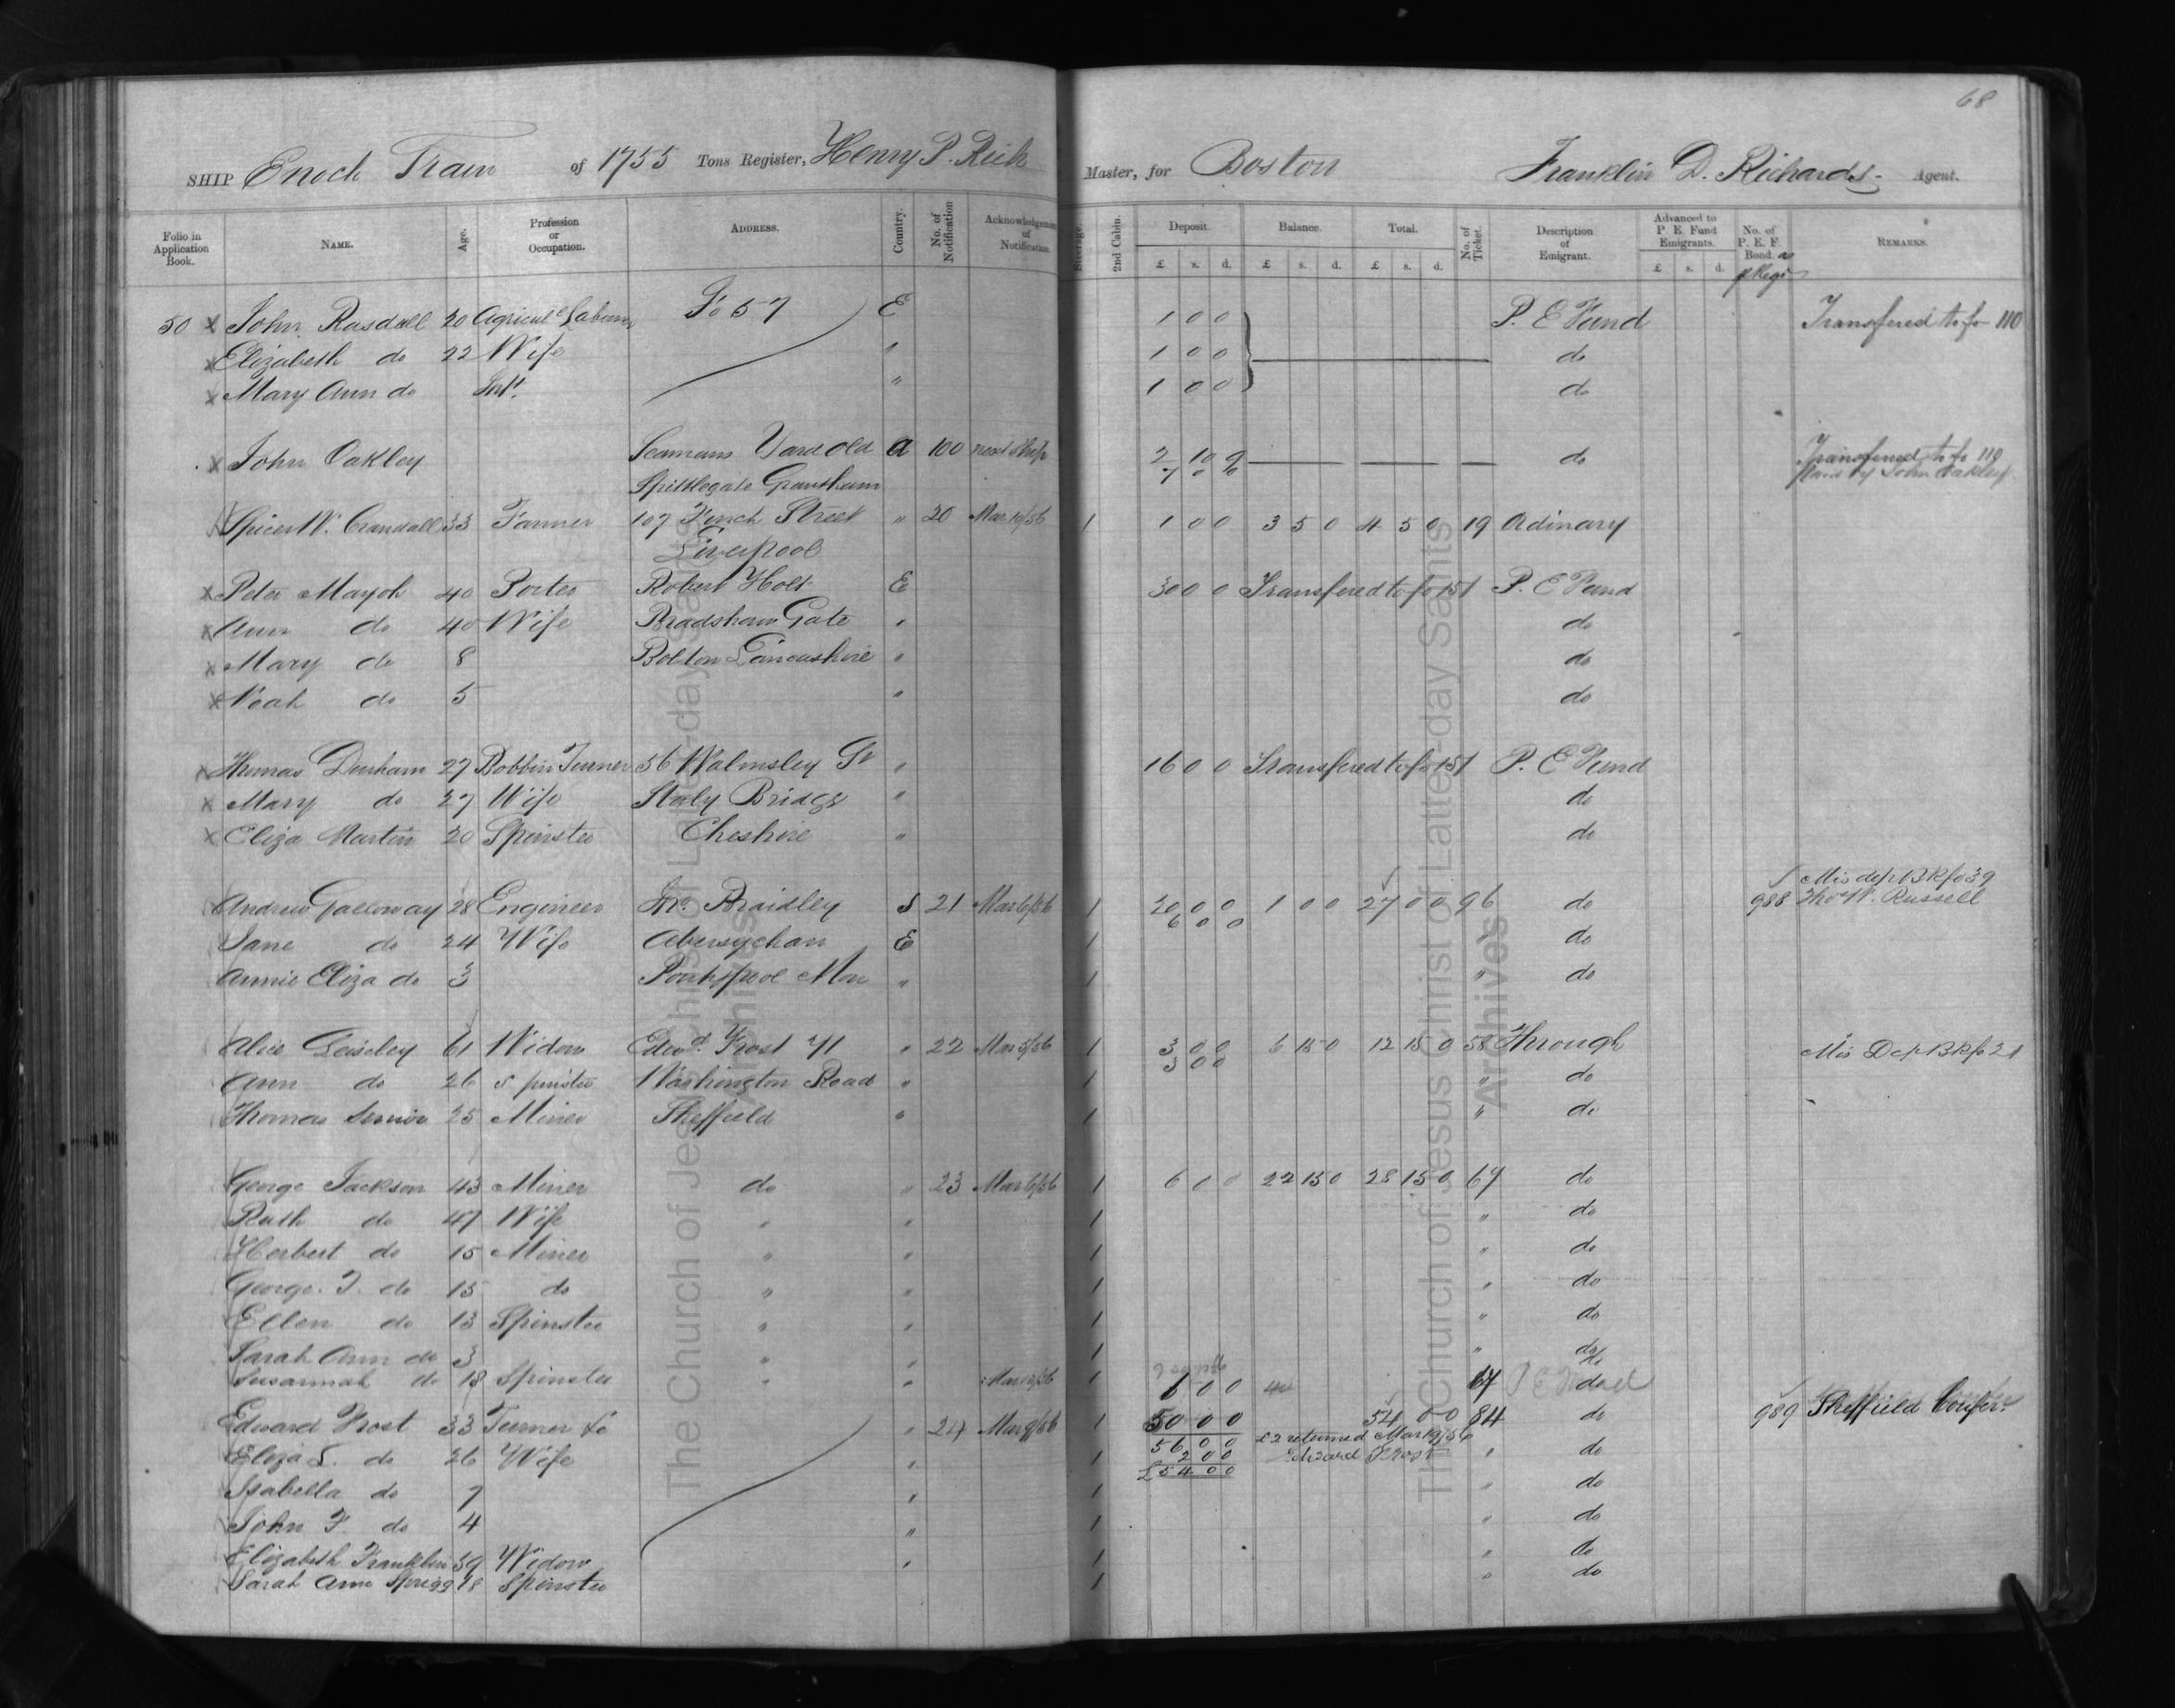 68
SHIP Enoch Train of 1755 Tons Register, Henry P. Rich Master, for Boston Franklin D. Richards Agent.
Folio in Application Book. NAME. Age. Profession or Occupation. ADDRESS. Country. No. of Notification Acknowledgement of Notification. Steerage. 2nd Cabin. Deposit. £ s. d. Balance. £ s. d. Total. £ s. d. No. of Ticket. Description of Emigrant. Advanced to P. E. Fund Emigrants. £ s. d. No. of P. E. F. Bond. REMARKS.
50 x John Rasdall 20 Agricul Labourer Fo 57 E 1 0 0 P. E Fund Transfered to fo 110
x Elizabeth do 22 Wife " 1 0 0 do
x Mary Ann do Inft. " 1 0 0 do
x John Oakley Seamans Yard Old a 100 next ship 2 10 9 do Transfered to fo 110
Spittlegate Grantham 7 0 0 Paid by John Oakley
Spicer W. Crandall 33 Farmer 107 Finch Street " 20 Mar 10/56 1 1 0 0 3 5 0 4 5 0 19 Ordinary
Liverpool
x Peter Mayoh 40 Porter Robert Holt E 30 0 0 Transfered to fo 151 P. E Fund
x Ann do 40 Wife Bradshaw Gate " do
x Mary do 8 Bolton Lancashire " do
x Noah do 5 " do
x Thomas Durham 27 Bobbin Turner 56 Walmsley St " 16 0 0 Transfered to fo 151 P. E Fund
x Mary do 27 Wife Staly Bridge " do
x Eliza Martin 20 Spinster Cheshire " do
Mis dep BK fo 39
Andrew Galloway 28 Engineer Jno. Braidley S 21 Mar 6/56 1 20 0 0 1 0 0 27 0 0 96 do 988 Thos W. Russell
6 0 0
Jane do 24 Wife Abersychan E 1 " do
Annie Eliza do 3 Pontypool Mon " 1 " do
Alice Leiseley 61 Widow Edwd. Frost 41 " 22 Mar 5/56 1 3 0 0 6 15 0 12 15 0 58 Through Mis Dep BK fo 21
3 0 0
Ann do 26 Spinster Washington Road " 1 " do
Thomas Senior 25 Miner Sheffield " 1 " do
George Jackson 43 Miner do " 23 Mar 6/56 1 6 0 0 22 15 0 28 15 0 67 do
Ruth do 47 Wife " " 1 " do
Herbert do 15 Miner " " 1 " do
George. T. do 15 do " " 1 " do
Ellen do 13 Spinster " " 1 " do
Sarah Ann do 3 " " 1 " do
Susannah do 18 Spinster " " Mar 12/56 1 6 0 0 67 do
Edward Frost 33 Turner &c " 24 Mar 9/56 1 50 0 0 54 0 0 84 do 989 Sheffield Confer.
56 0 0 £2 returned Mar 19/56
Eliza S. do 26 Wife " 1 2 0 0 Edward Frost " do
£54 0 0
Isabella do 7 " 1 " do
John F. do 4 " 1 " do
Elizabeth Franklin 59 Widow " 1 " do
Sarah Ann Sprigg 18 Spinster 1 " do
The Church of Jesus Christ of Latter-day Saints
Archives
The Church of Jesus Christ of Latter-day Saints
Archives